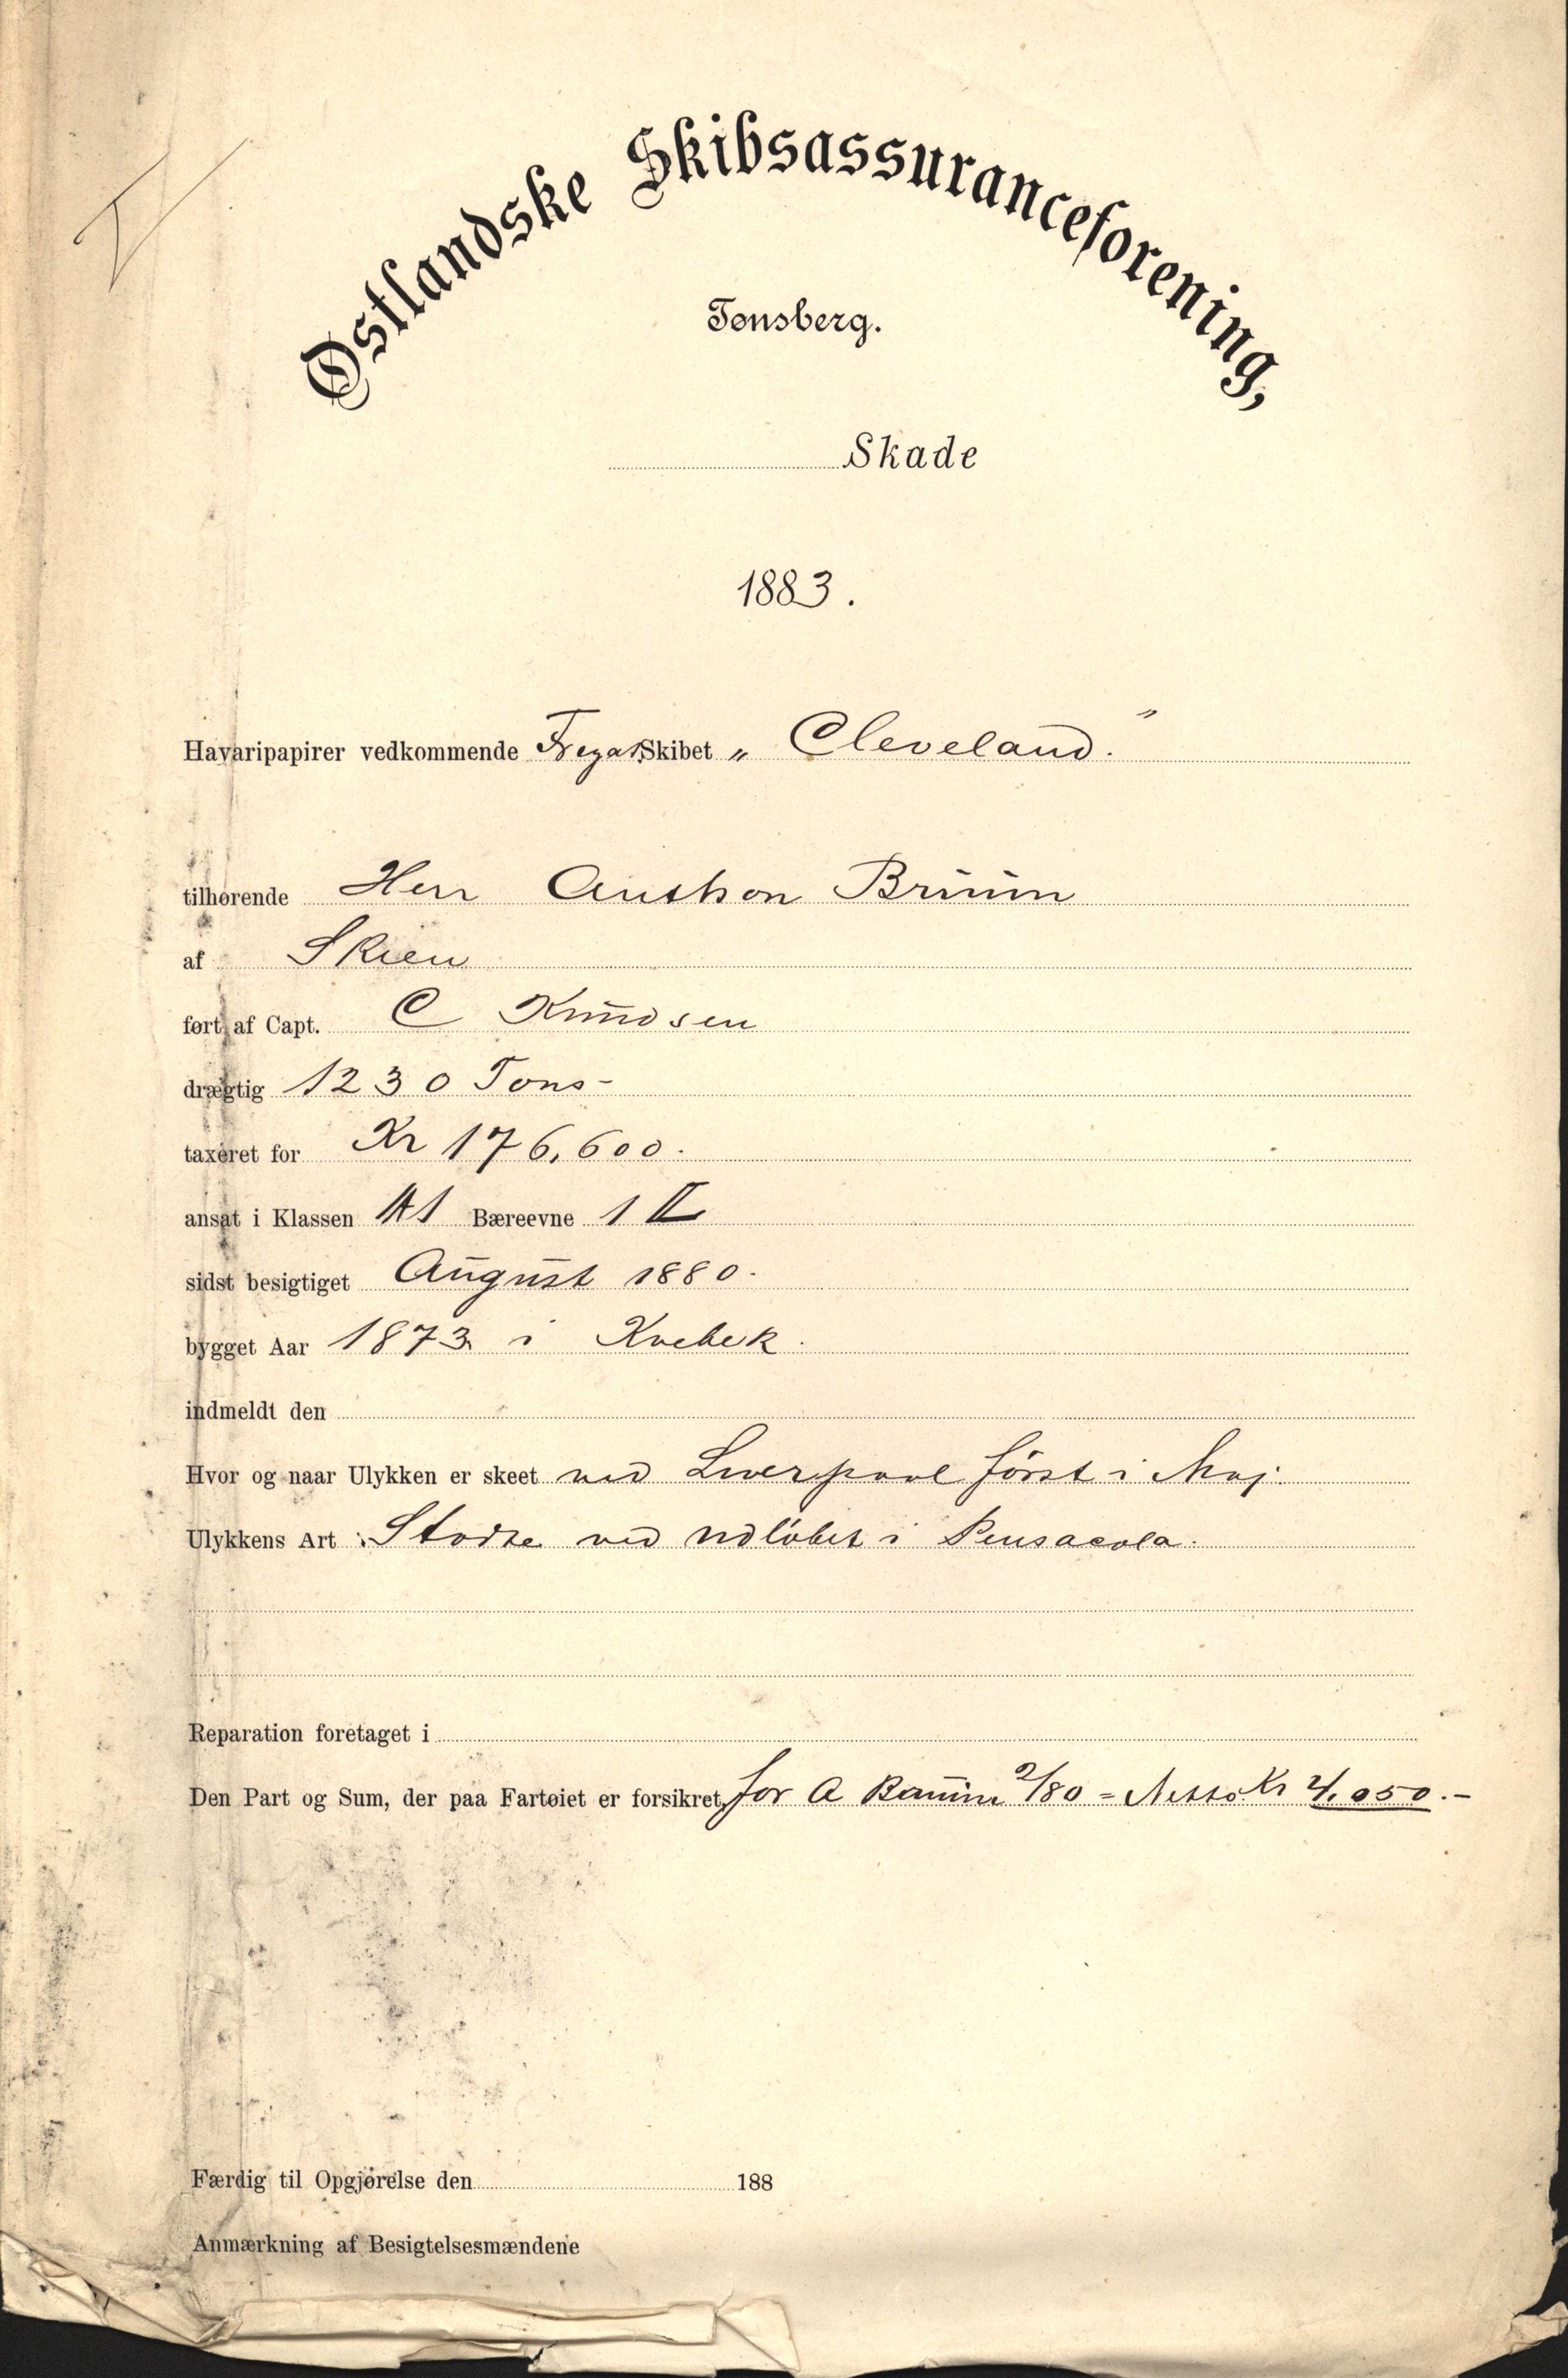 Østlandske Skibsassuranceforening,
Tønsberg.
Skade
1883.
Havaripapirer vedkommende FregatSkibet „Cleveland."
tilhørende Herr Anthon Bruun
af Skien
ført af Capt. C Knudsen
drægtig 1230 Tons-
taxeret for Kr 176,600.
ansat i Klassen A1 Bæreevne 1 II
sidst besigtiget August 1880.
bygget Aar 1873 i Kvebek.
indmeldt den
Hvor og naar Ulykken er skeet ved Liverpool først i Maj.
Ulykkens Art : Stødte ved udløbet i Pensacola.
Reparation foretaget i
Den Part og Sum, der paa Fartøiet er forsikret, for A Bruun 2/80 = Netto Kr 4,050.-
Færdig til Opgjørelse den 188
Anmærkning af Besigtelsesmændene